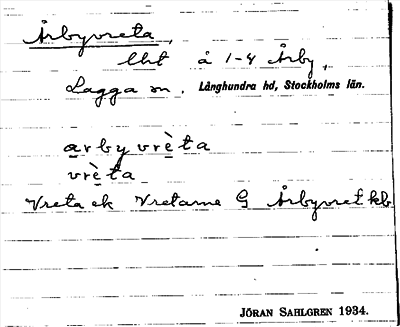 Årbyvreta,
lht å 1-4 Årby,
Lagga sn. Långhundra hd, Stockholms län.
arbyvrèta
vrèta
Vreta ek Vretarne G Årbyvret kb
JÖRAN SAHLGREN 1934.